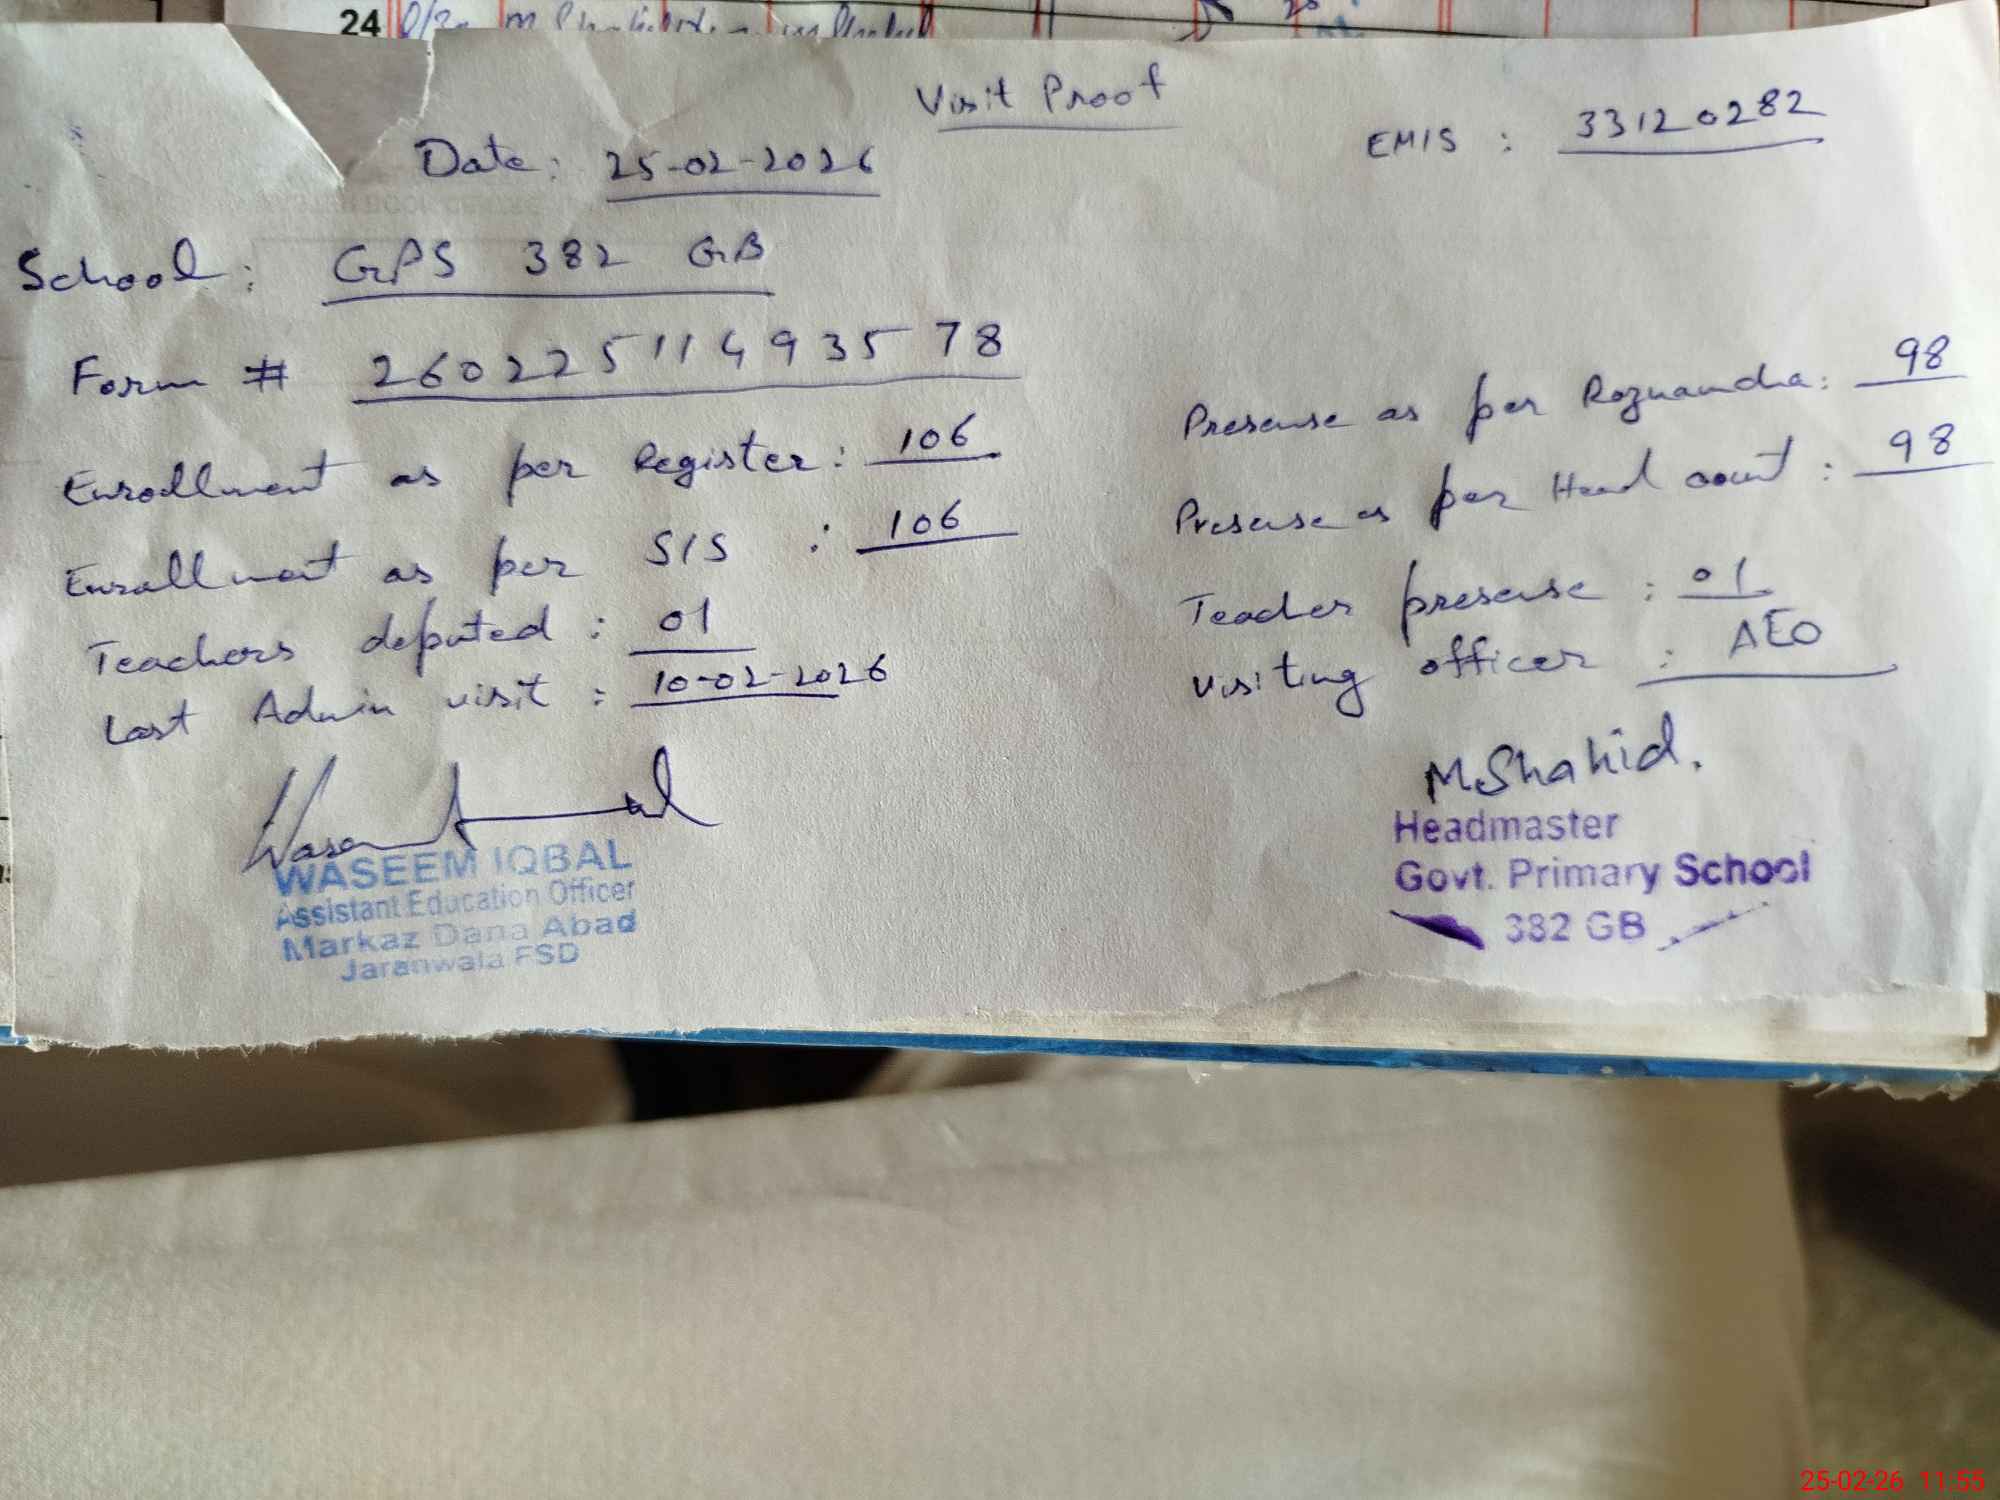 24
Visit Proof
Date: 25-02-2026
EMIS : 33120282
School: GPS 382 GB
Form # 26022511493578
Enrollment as per Register: 106
Enrollment as per SIS : 106
Teachers deputed : 01
Last Admin visit : 10-02-2026
Presense as per Roznamcha: 98
Presense as per Head count : 98
Teacher presense : 01
Visiting officer : AEO
WASEEM IQBAL
Assistant Education Officer
Markaz Dana Abad
Jaranwala FSD
M.Shahid.
Headmaster
Govt. Primary School
382 GB
25-02-26 11:55